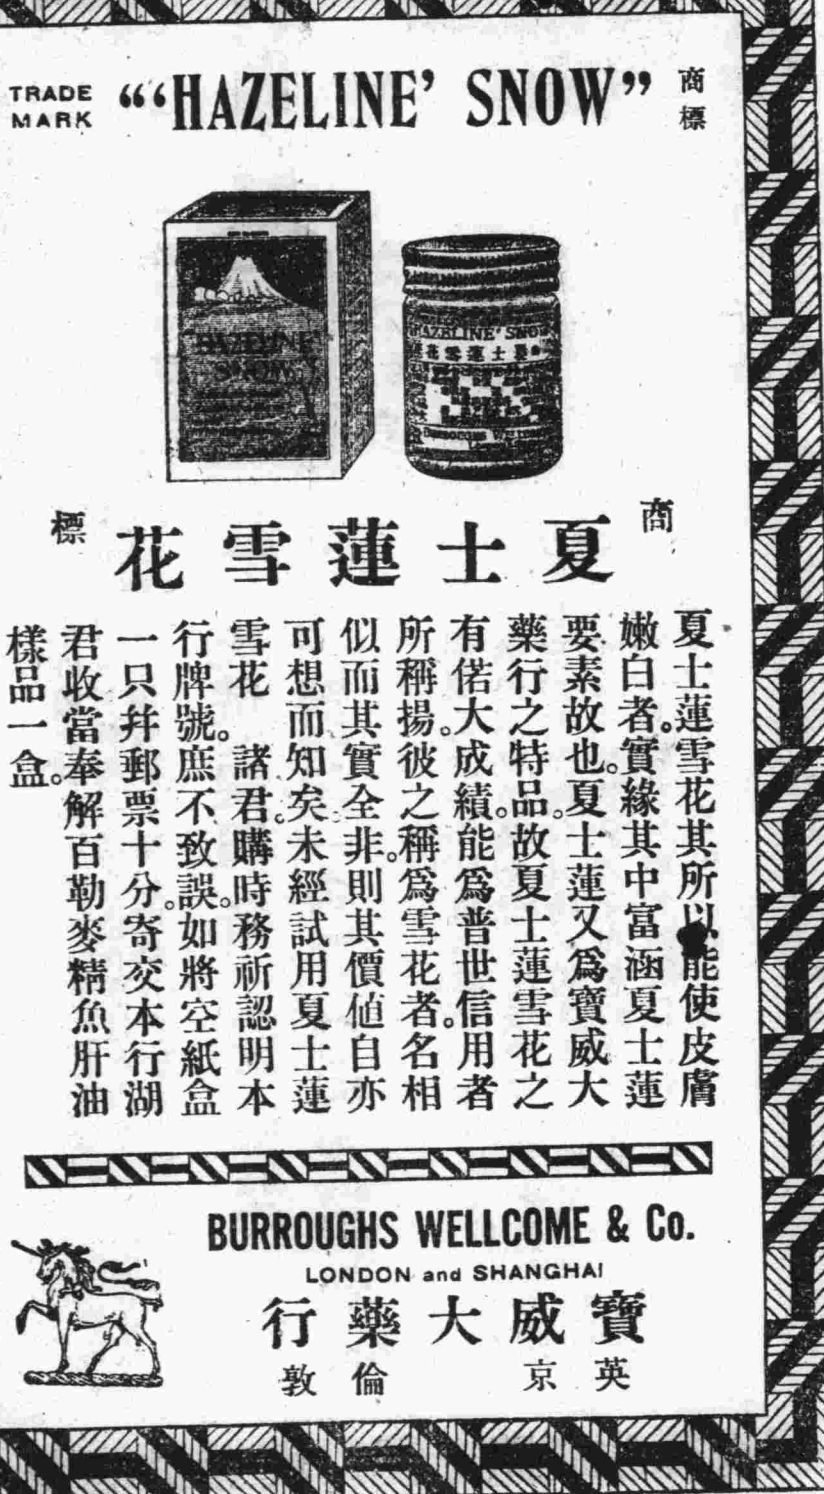 TRADE MARK
"'HAZELINE' SNOW"
商標
HAZELINE
SNOW
'HAZELINE' SNOW
花雪蓮士夏
商標
夏士蓮雪花
夏士蓮雪花其所以能使皮膚
嫩白者。實緣其中富涵夏士蓮
要素故也。夏士蓮又爲寶威大
藥行之特品。故夏士蓮雪花之
有偌大成績。能爲普世信用者
所稱揚。彼之稱爲雪花者。名相
似而其實全非。則其價値自亦
可想而知矣。未經試用夏士蓮
雪花 諸君。購時務祈認明本
行牌號。庶不致誤。如將空紙盒
一只幷郵票十分。寄交本行湖
君收當奉解百勒麥精魚肝油
樣品一盒。
BURROUGHS WELLCOME & Co.
LONDON and SHANGHAI
寶威大藥行
英京 倫敦